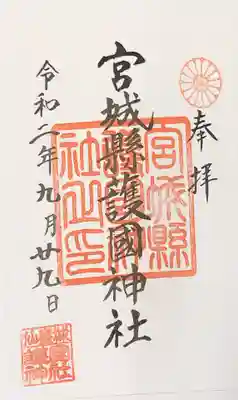 奉拝
宮城縣護國神社
令和二年九月廿九日
宮城縣
護國神
社之印